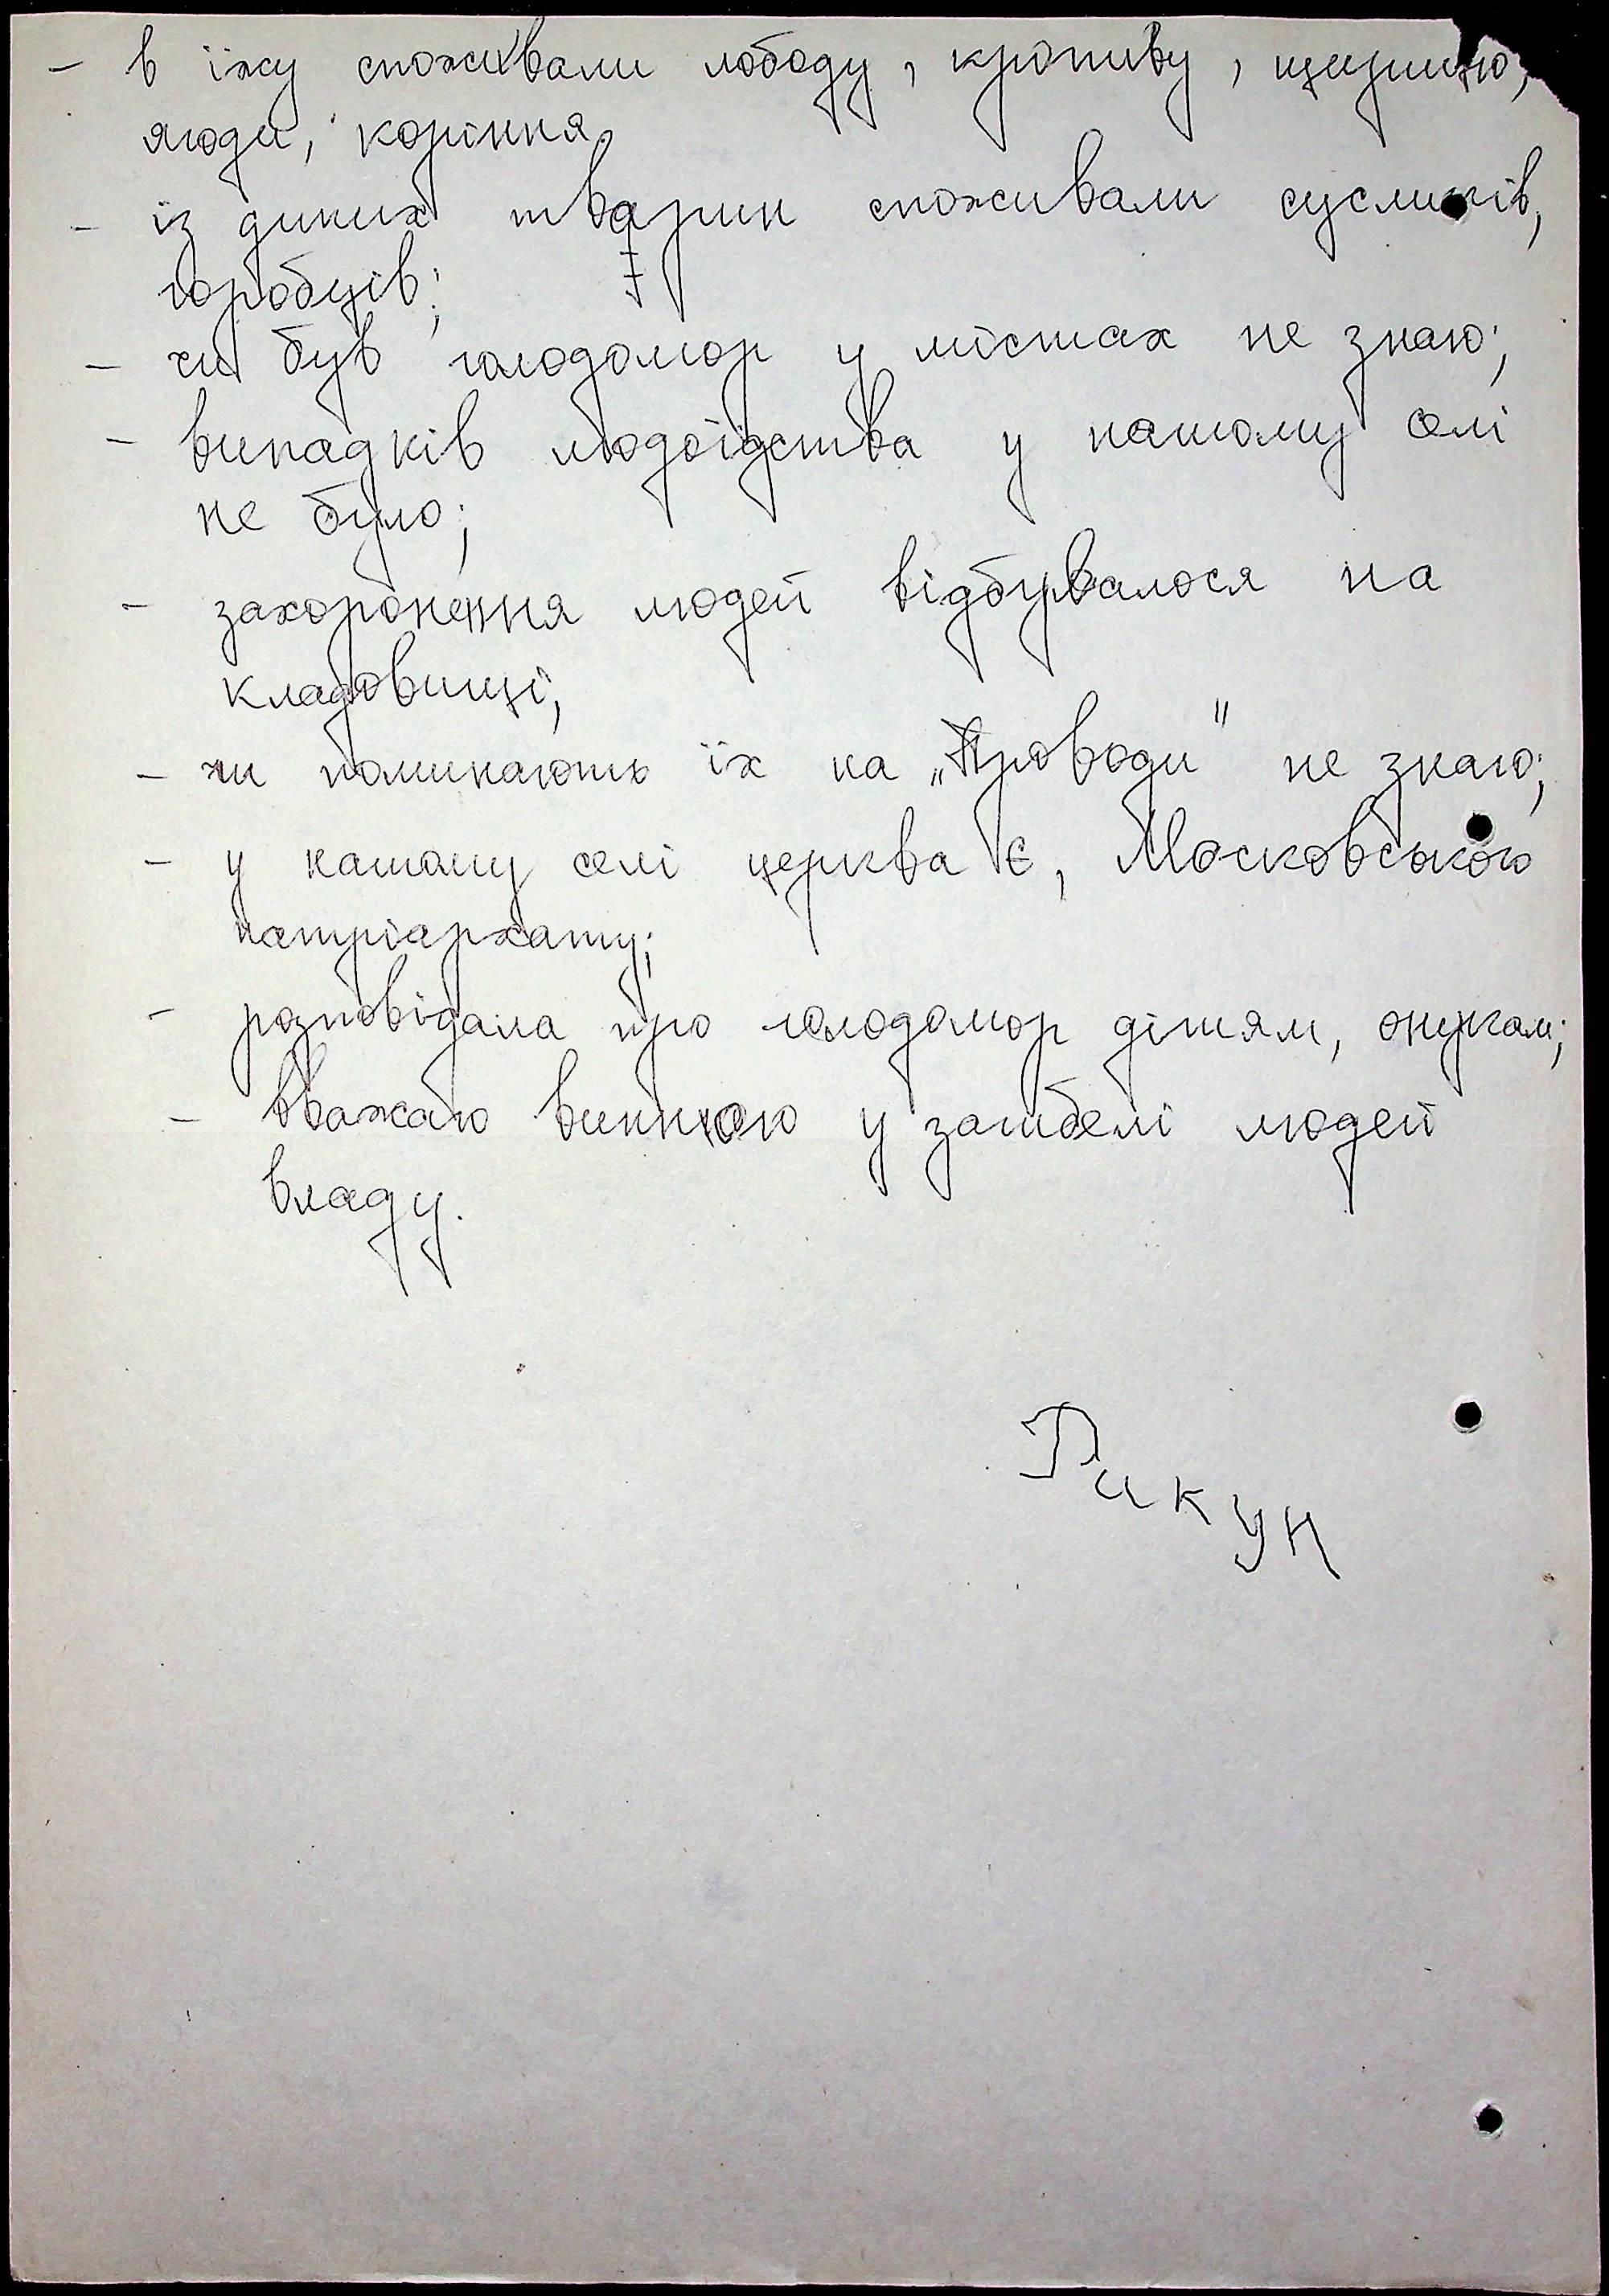 - в їжу споживали лободу, кропиву, щирицю,
ягоди, коріння.
- із диких тварин споживали сусликів,
горобців;
- чи був голодомор у містах не знаю;
- випадків людоїдства у нашому селі
не було;
- захоронення людей відбувалося на
кладовищі;
- чи поминають їх на „Проводи" не знаю;
- у нашому селі церква є, Московського
патріархату;
- розповідала про голодомор дітям, онукам;
- вважаю винною у загибелі людей
владу.
Дикун